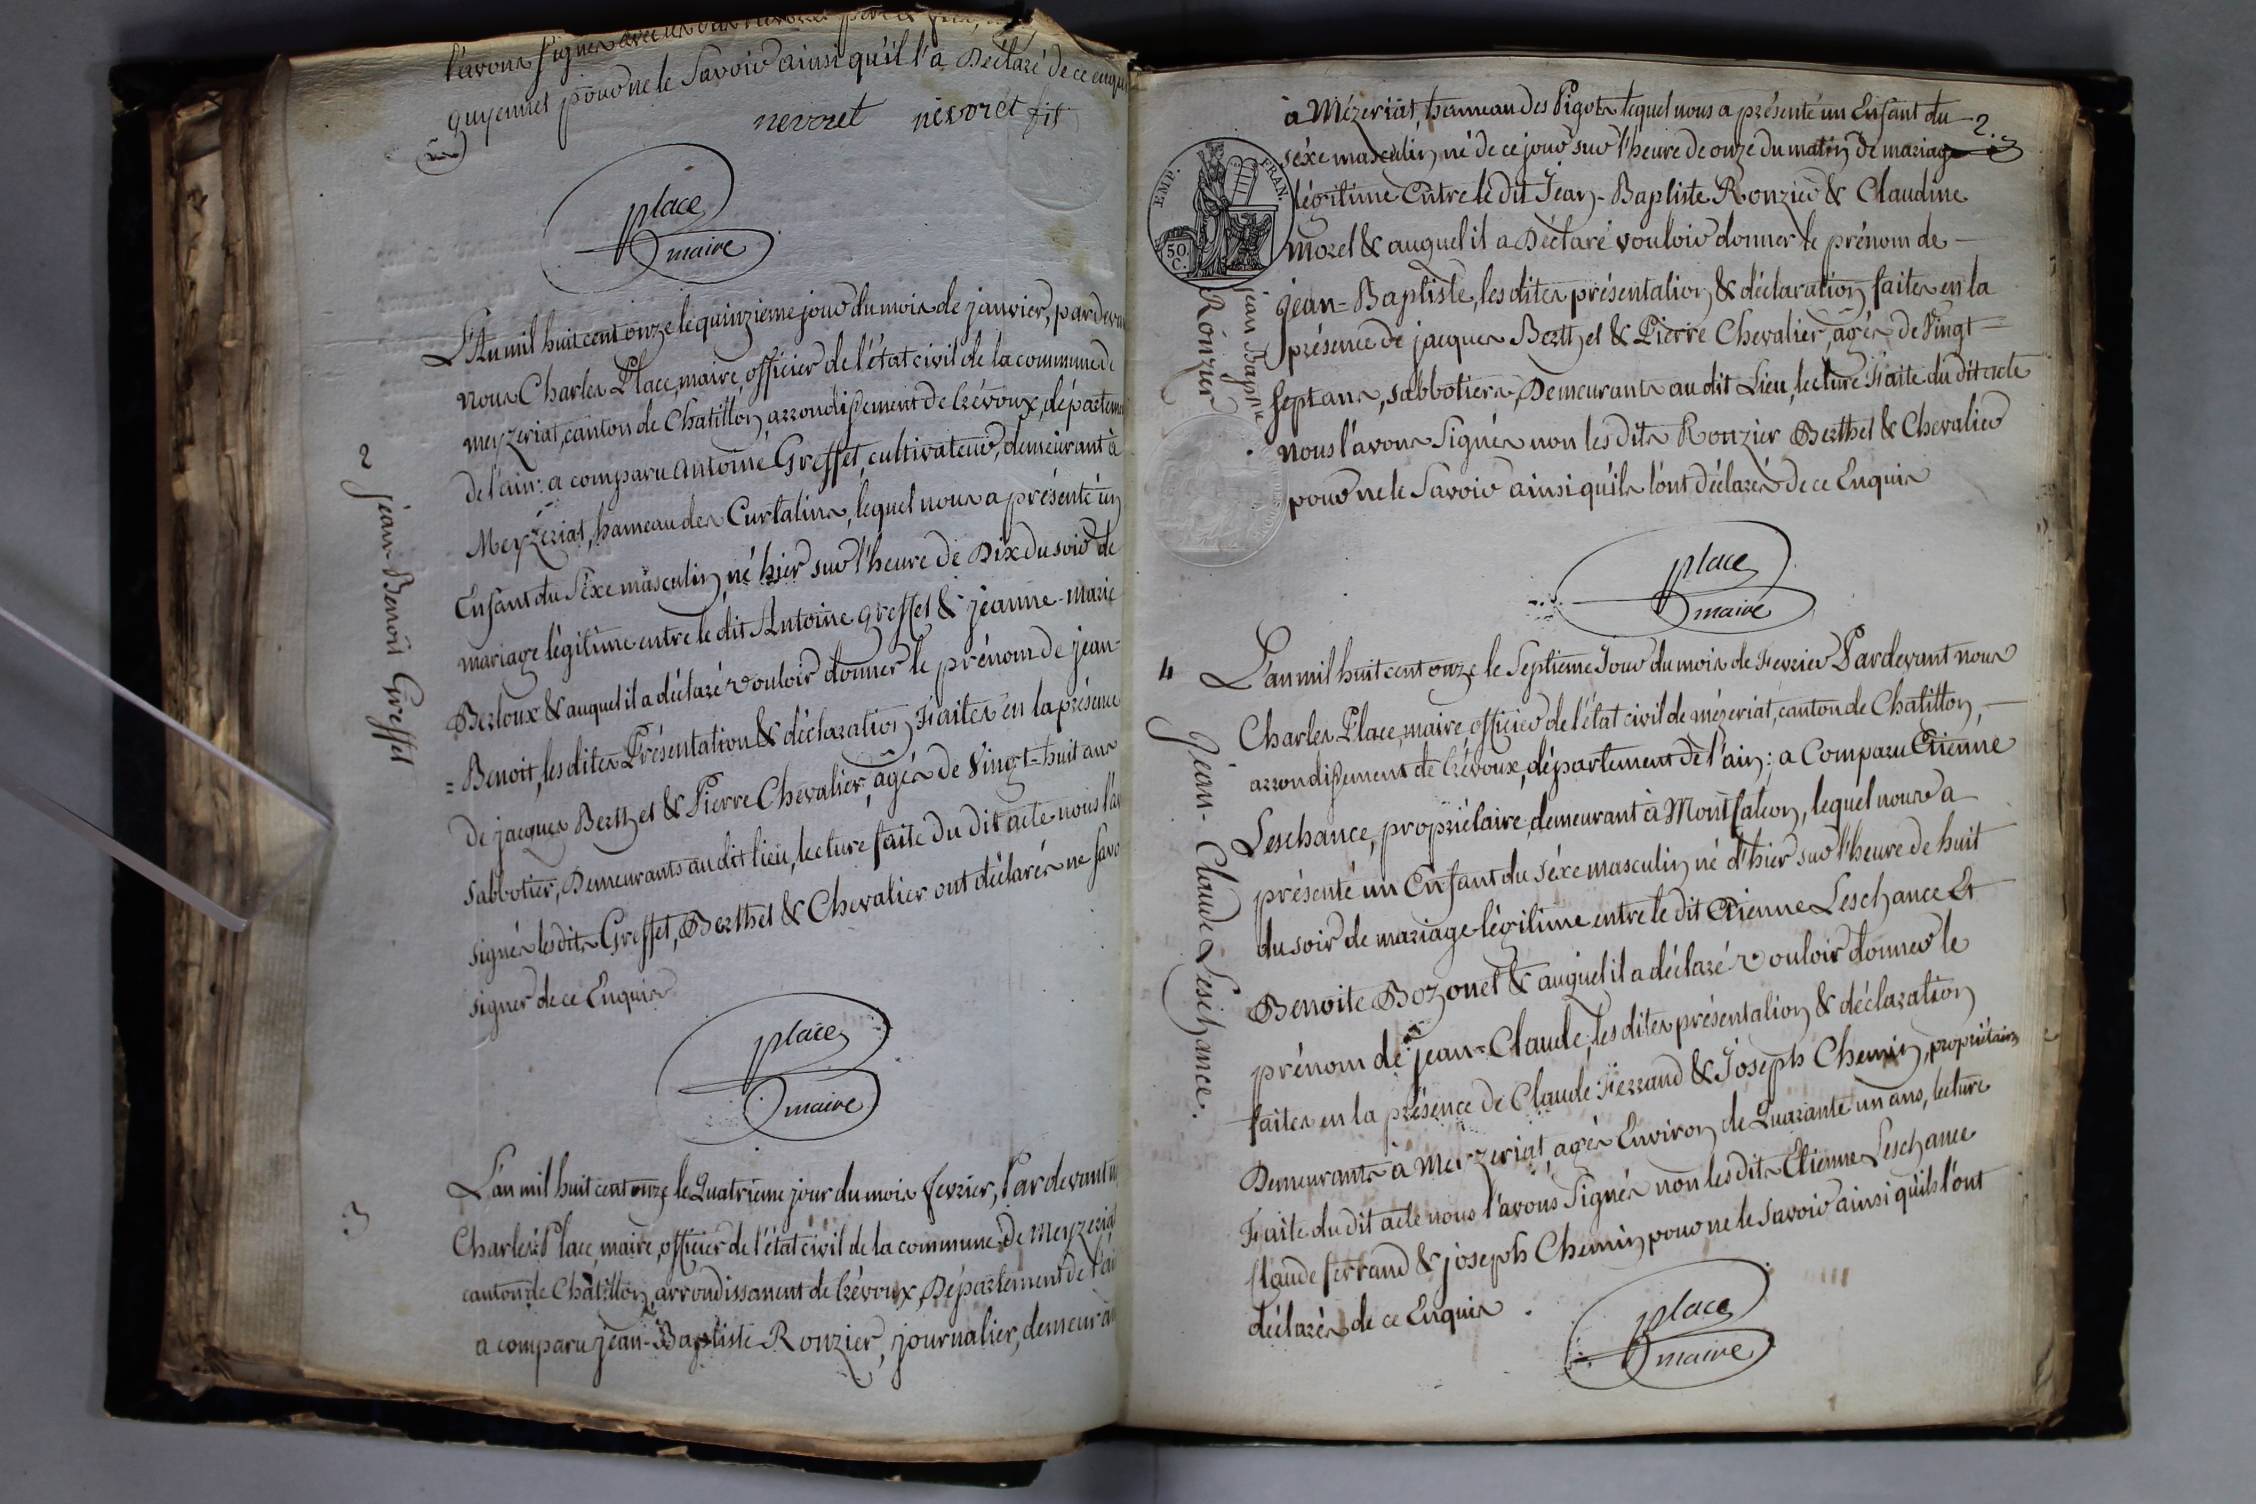 l'avons signés avec
quyennet pour ne le Savoir ainsi qu'il l'a Déclaré de ce enqui
nevoret nevoret fils
place
maire
L'An mil huit cent onze le quinzieme jour du mois de janvier, par deva
nous Charles Place, maire, officier de l'état civil de la commune de
meyzeriat, canton de Chatillon, arrondissement de trévoux, départeme
de l'ain: a comparu antoine Greffet, cultivateur, demeurant à
Meyzeriat, hameau des Curtalins, lequel nous a présenté un
Enfant du Séxe masculin, né hier sur l'heure de Dix du soir de
mariage légitime entre le dit Antoine greffet & jeanne-marie
Berloux & auquel il a déclaré vouloir donner le prénom de jean-
=Benoit, les dites Présentation & déclaration Faites en la présence
de jacques Berthet & Pierre Chevalier, âgés de Vingt-huit ans
sabbotier, Demeurants au dit lieu, lecture faite du dit acte nous l'av
signés les dits Greffet, Berthet & Chevalier ont déclarés ne Savo
signer de ce Enquis
2 jean-Benoit Greffet
place
maire
3
L'an mil huit cent onze le Quatrieme jour du mois fevrier, Pardevant n
Charles Place, maire, officier de l'état civil de la commune, de Meyzeriat
canton de Chatillon, arrondissement de trévoux, Département de l'ai
a comparu jean-Baptiste Ronzier, journalier, demeuran
2.
à Mézeriat, hameau des Pigots lequel nous a présenté un Enfant du
séxe masculin né de ce jour sur l'heure de onze du matin de mariage
légitime Entre le dit Jean-Baptiste Ronzier & Claudine
Morel & auquel il a Déclaré vouloir donner le prénom de
jean=Baptiste, les dites présentation & déclaration faites en la
présence de jacques Berthet & Pierre Chevalier, âgés de Vingt=
Sept ans, sabbotiers, Demeurants au dit Lieu, lecture Faite du dit acte
nous l'avons Signés non les dits Ronzier Berthet & Chevalier
pour ne le Savoir ainsi qu'ils l'ont déclarés de ce Enquis
EMP. FRAN.
50.
C.
jean Baptte
Ronzier
place
maire
4
L'an mil huit cent onze le Septieme Jour du mois de Fevrier Pardevant nous
Charles Place, maire, officier de l'état civil de mézeriat, canton de Chatillon,
arrondissement de trévoux, département de l'ain; a Comparu Etienne
Leschance, propriétaire, demeurant à Montfalcon, lequel nous a
présenté un Enfant du séxe masculin né d'hier sur l'heure de huit
du soir de mariage légitime entre le dit Etienne Leschance Et
Benoite Bozonet & auquel il a déclaré vouloir donner le
prénom de jean=Claude, les dites présentation & déclaration
faites en la présence de Claude Ferrand & Joseph Chemin, propriétaires
Demeurants à Meyzeriat, agés Environ de Quarante un ans, lecture
Faite du dit acte nous l'avons Signés non les dits Etienne Leschance
Claude ferrand & joseph Chemin pour ne le Savoir ainsi qu'ils l'ont
déclarés de ce Enquis.
Jean-Claude Leschance.
place
maire